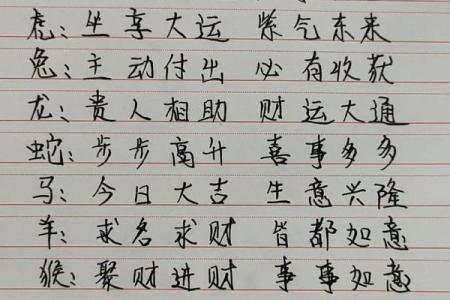 虎：坐享大运 紫气东来
兔：主动付出 必有收获
龙：贵人相助 财运大通
蛇：步步高升 喜事多多
马：今日大吉 生意兴隆
羊：求名求财 皆都如意
猴：聚财进财 事事如意